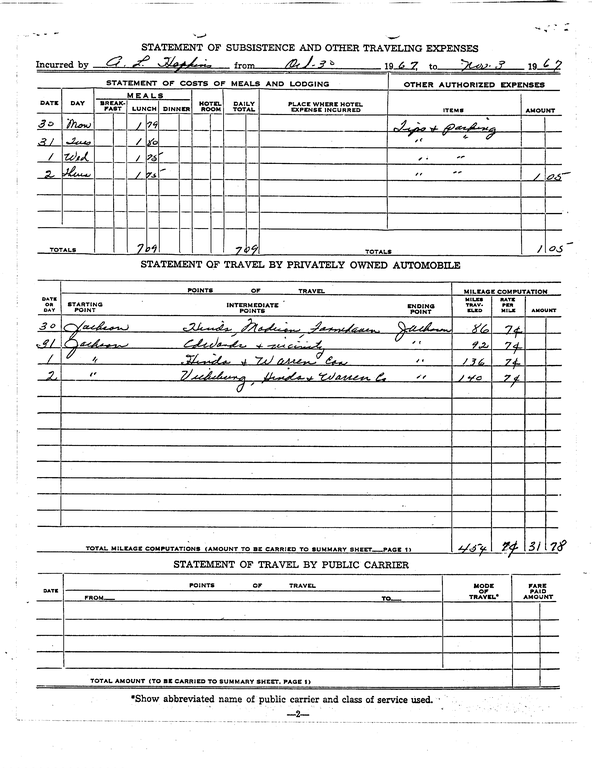 STATEMENT OF SUBSISTENCE AND OTHER TRAVELING EXPENSES
Incurred by A. L. Hopkins from Oct-30 1967, to Nov-3 1967
STATEMENT OF COSTS OF MEALS AND LODGING OTHER AUTHORIZED EXPENSES
MEALS
DATE DAY BREAK-FAST LUNCH DINNER HOTEL ROOM DAILY TOTAL PLACE WHERE HOTEL EXPENSE INCURRED ITEMS AMOUNT
30 Mon 1 79 Tips & parking
31 Tues 1 80 " "
1 Wed 1 75 " "
2 Thurs 1 75 " " 1 05
TOTALS 7 09 7 09 TOTALS 1 05
STATEMENT OF TRAVEL BY PRIVATELY OWNED AUTOMOBILE
POINTS OF TRAVEL MILEAGE COMPUTATION
DATE OR DAY STARTING POINT INTERMEDIATE POINTS ENDING POINT MILES TRAV-ELED RATE PER MILE AMOUNT
30 Jackson Hinds, Madison, Jackson 86 7¢
31 Jackson Edwards & vicinity " 92 7¢
1 " Hinds & Warren Cos " 136 7¢
2 " Vicksburg, Hinds & Warren Co " 140 7¢
TOTAL MILEAGE COMPUTATIONS (AMOUNT TO BE CARRIED TO SUMMARY SHEET PAGE 1) 454 7¢ 31 78
STATEMENT OF TRAVEL BY PUBLIC CARRIER
DATE POINTS OF TRAVEL MODE OF TRAVEL* FARE PAID AMOUNT
FROM TO
TOTAL AMOUNT (TO BE CARRIED TO SUMMARY SHEET. PAGE 1)
*Show abbreviated name of public carrier and class of service used.
—2—